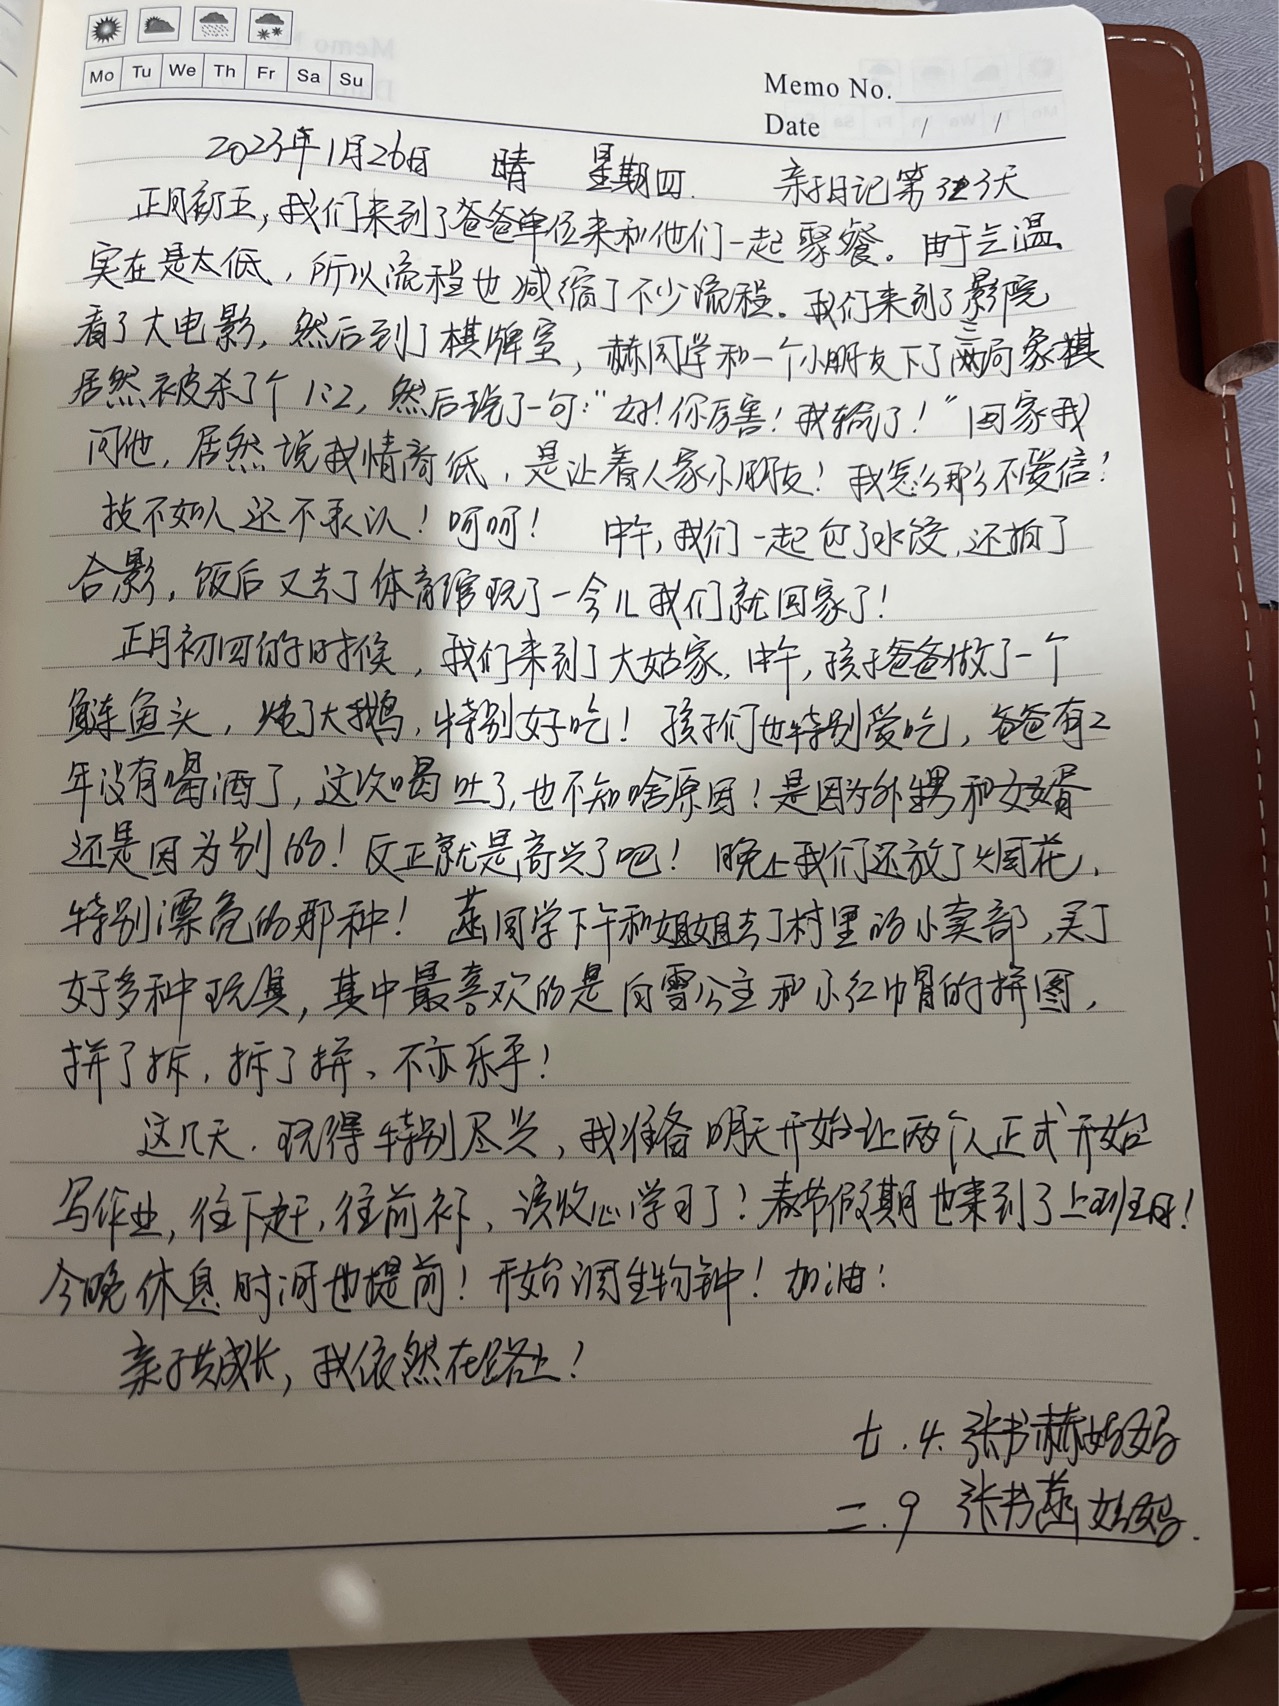 Mo Tu We Th Fr Sa Su
Memo No.
Date / /
2023年1月26日 晴 星期四. 亲子日记第 天
正月初五，我们来到了爸爸单位来和他们一起聚餐。由于气温
实在是太低，所以流程也减缩了不少流程。我们来到了影院
看了大电影，然后到了棋牌室，赫同学和一个小朋友下了三局象棋
居然被杀了个1:2，然后说了一句:"好!你厉害!我输了!"回家我
问他，居然说我情商低，是让着人家小朋友!我怎么那么不爱信!
技不如人还不承认!呵呵! 中午，我们一起包了水饺，还拍了
合影，饭后又去了体育馆玩了一会儿我们就回家了!
正月初四的时候，我们来到了大姑家，中午，孩子爸爸做了一个
鲢鱼头，炖了大鹅，特别好吃!孩子们也特别爱吃，爸爸有2
年没有喝酒了，这次喝吐了，也不知啥原因!是因为外甥和女婿
还是因为别的!反正就是高兴了吧! 晚上我们还放了烟花，
特别漂亮的那种! 菡同学下午和姐姐去了村里的小卖部，买了
好多种玩具，其中最喜欢的是白雪公主和小红帽的拼图，
拼了拆，拆了拼、不亦乐乎!
这几天.玩得特别尽兴，我准备明天开始让两个人正式开始
写作业，往下赶，往前补，该收心学习了!春节假期也来到了上班
今晚休息时间也提前!开始调生物钟!加油!
亲子共成长，我依然在路上!
七.4.张书赫妈妈
二.9 张书菡妈妈.